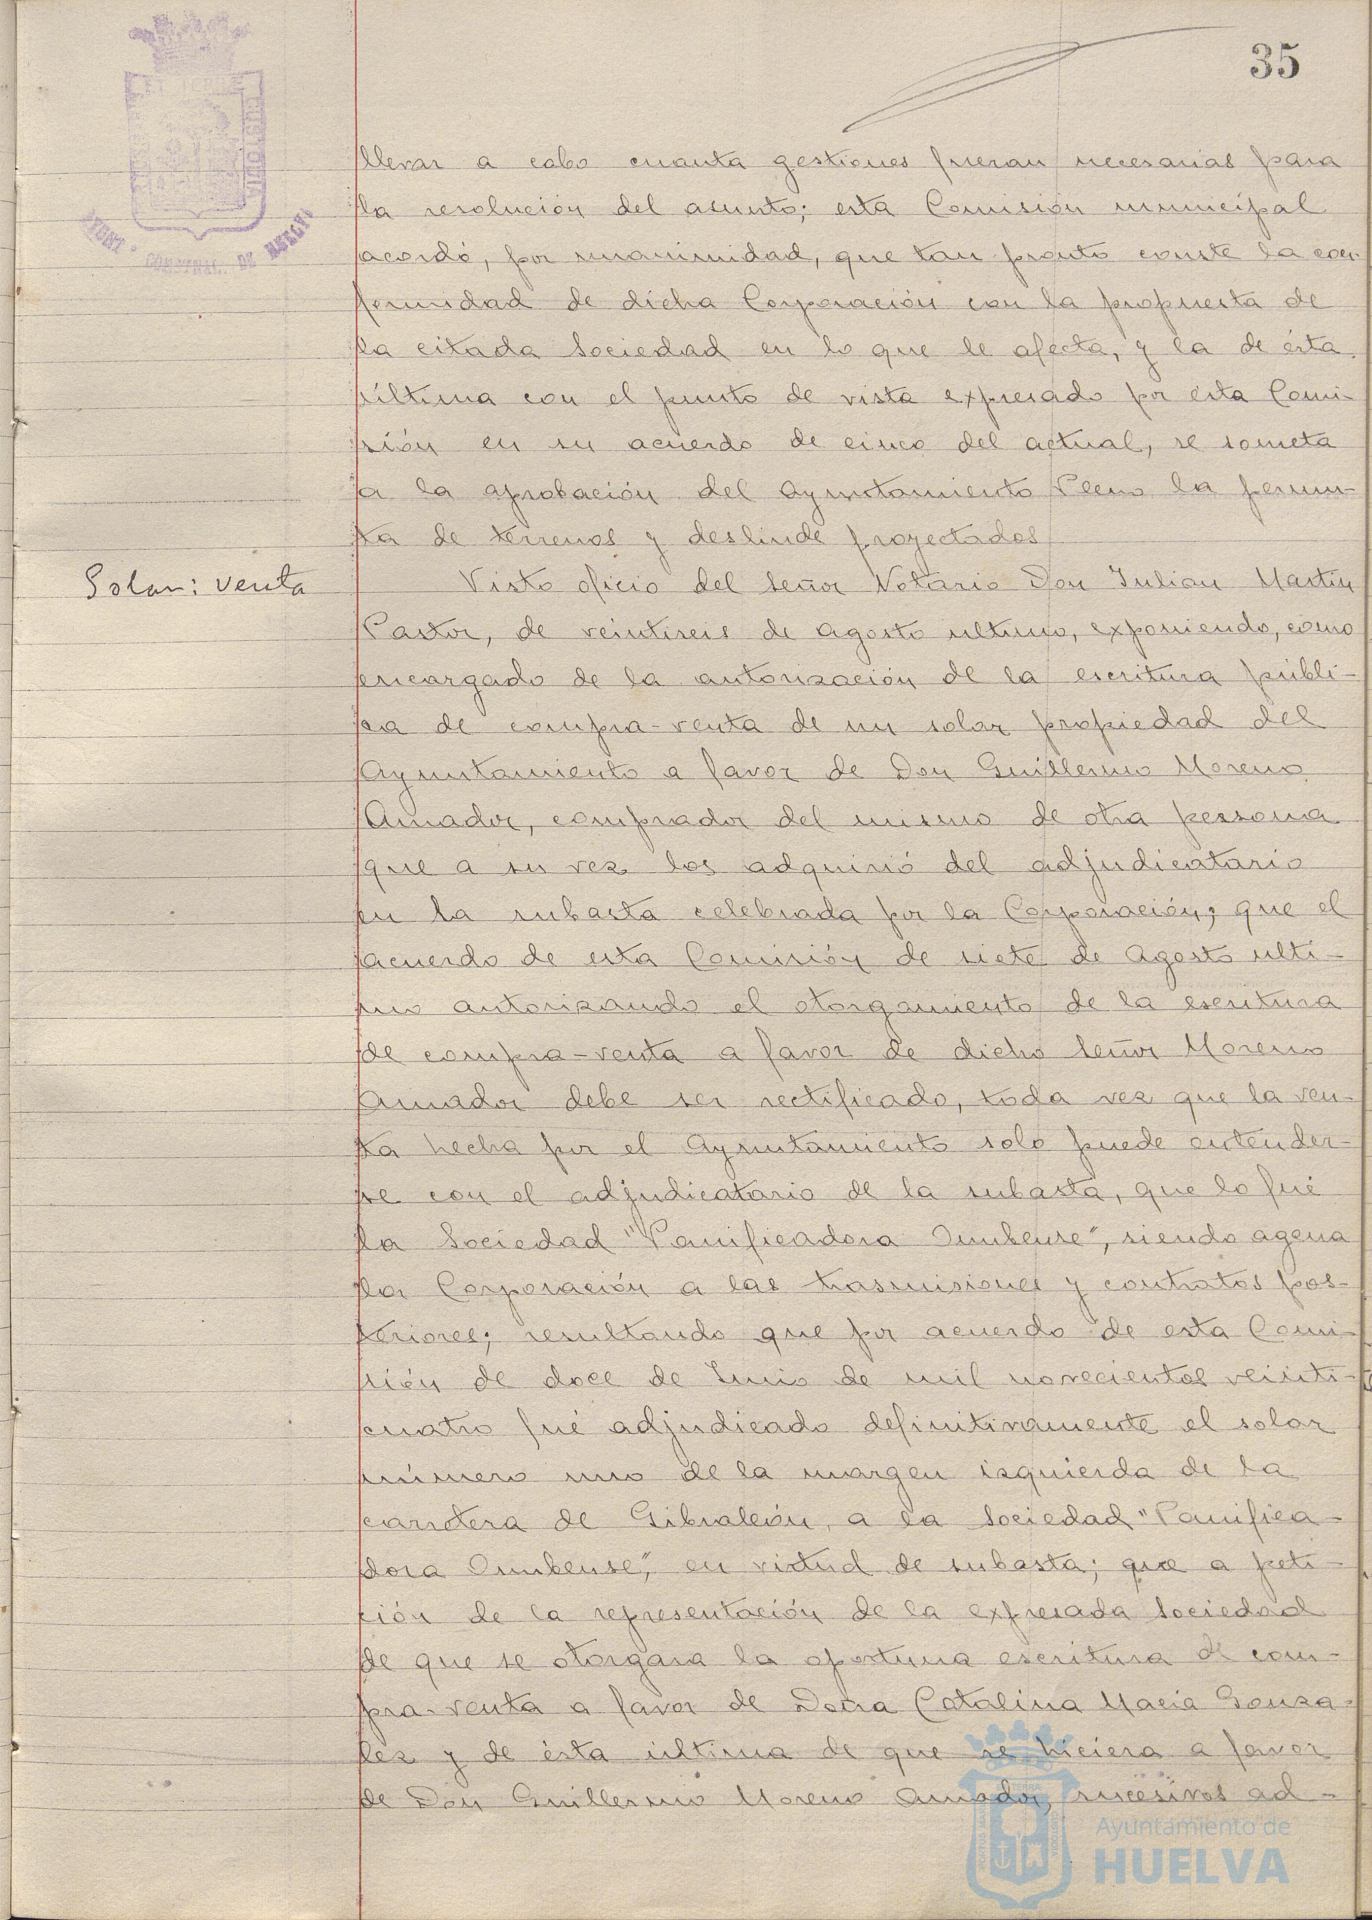 35
llevar a cabo cuanta gestiones fueran necesarias para
la resolución del asunto; esta Comisión municipal
acordó, por unanimidad, que tan pronto conste la con-
formidad de dicha Corporación con la propuesta de
la citada Sociedad en lo que le afecta, y la de ésta
última con el punto de vista expresado por esta Comi-
sión en su acuerdo de cinco del actual, se someta
a la aprobación del Ayuntamiento Pleno la permu-
ta de terrenos y deslinde proyectados
Solar: venta
Visto oficio del Señor Notario Don Julian Martin
Pastor, de veintiseis de Agosto ultimo, exponiendo, como
encargado de la autorización de la escritura públi-
ca de compra-venta de un solar propiedad del
Ayuntamiento a favor de Don Guillermo Moreno
Amador, comprador del mismo de otra persona
que a su vez los adquirió del adjudicatario
en la subasta celebrada por la Corporación; que el
acuerdo de esta Comisión de siete de Agosto ulti-
mo autorizando el otorgamiento de la escritura
de compra-venta a favor de dicho Señor Moreno
Amador debe ser rectificado, toda vez que la ven-
ta hecha por el Ayuntamiento solo puede entender-
se con el adjudicatario de la subasta, que lo fué
la Sociedad "Panificadora Onubense", siendo agena
la Corporación a las trasmisiones y contratos pos-
teriores; resultando que por acuerdo de esta Comi-
sión de doce de Junio de mil novecientos veinti-
cuatro fué adjudicado definitivamente el solar
número uno de la margen izquierda de la
carretera de Gibraleón, a la Sociedad "Panifica-
dora Onubense", en virtud de subasta; que a peti-
ción de la representación de la expresada Sociedad
de que se otorgara la oportuna escritura de com-
pra-venta a favor de Doña Catalina Macia Gonza-
lez y de ésta última de que se hiciera a favor
de Don Guillermo Moreno Amador, sucesivos ad-
Ayuntamiento de
HUELVA